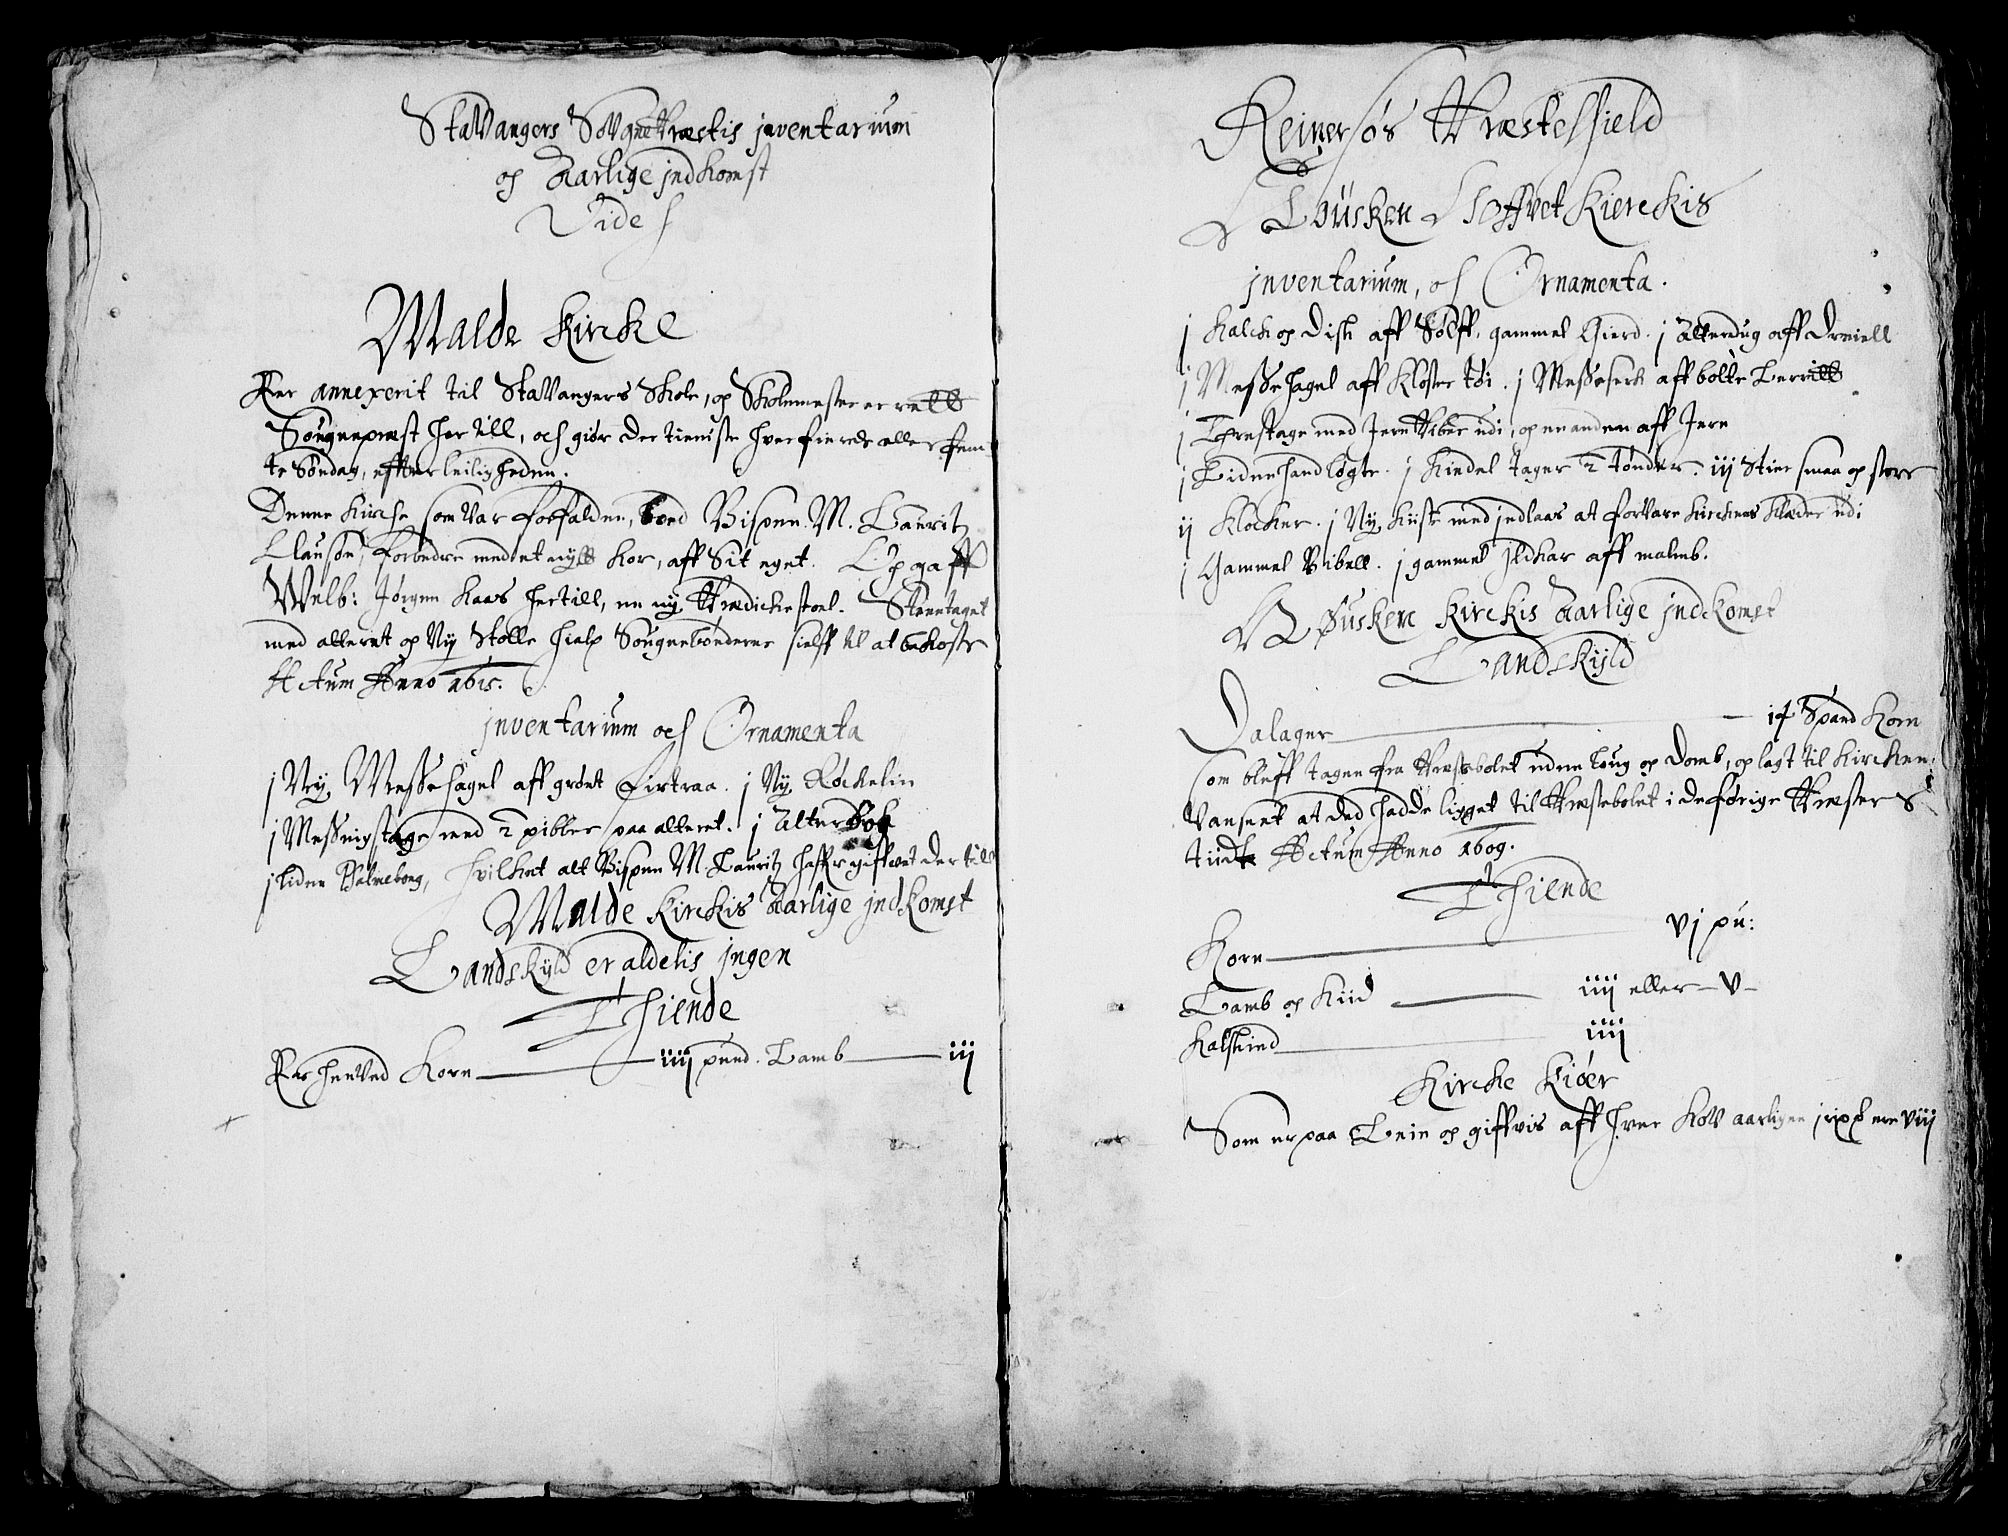 StaVangers SoVgnePræstis jnventarium
og Aarlige jndkomst
Vide f
Malde Kircke
Er annexerit til StaVangers Skole, og Skolemester er rett
Sougnepræst her till, och giør der tieniste hver fierede aller fem
te Søndag, effter leiligheden.
Denne Kircke som Var forfalden, loed Bispen M. Lauritz
Clausøn, forbedre med et nytt Kor, aff Sit eget. Og gaff
Welb: Jørgen Kaas hertill, en ny Prædickestoel.
med alteret og Ny Stolle hialp Sougnebønderne sielff til at bekoste
Actum Anno 1615.
jnventarium och Ornamenta
j Ny Messehagel aff grønt j Ny Røckelin
j Messingstage med 2 pibber paa alteret. j Alterbog
j liden Psalmebog, hvilket alt Bispen M. Lauritz haffr giffvet der till
Malde Kirckis Aarlige jndKomst
Landskyld er aldelis jngen
Thiende
Er henVed Korn iiij pund. Lamb iij
Reinesøs Præstehield
Tousken Hoffvet Kierckis
jnventarium, och Ornamenta.
j Kalck og Disk aff Sølff, gammel Gierd. j Alterdug aff Dreiell
j Messehagel aff Kloster tøi. j Messeserk aff bolte Lerritt
j Threstage med Jern Piber udi, og en anden aff Jern
j Liden handløgte. j Kiedel tager 2 tønder. iij Stier smaa og store
ij Klocker. j Ny Kiste med jndlaas at forVare Kirckens Klæder udi
j Gammel Bibell. j gammel jldkar aff malmb.
Tøusken Kirckis Aarlige jndkomst
Landskyld
Dalager 14 Spand Korn
Som bleff tagen fra Præstebolet uden Loug og Domb, og lagt til Kircken.
Vanseet at ded hadde ligget til Præstebolet i de forige Præsters
tiid Actum Anno 1609.
Thiende
Korn vj pu:
Lamb og Kiid iiij eller v
Kalskind iiij
Kircke Kiøer
Som er paa Leie og giffvis aff hver KoV aarligen ere viij